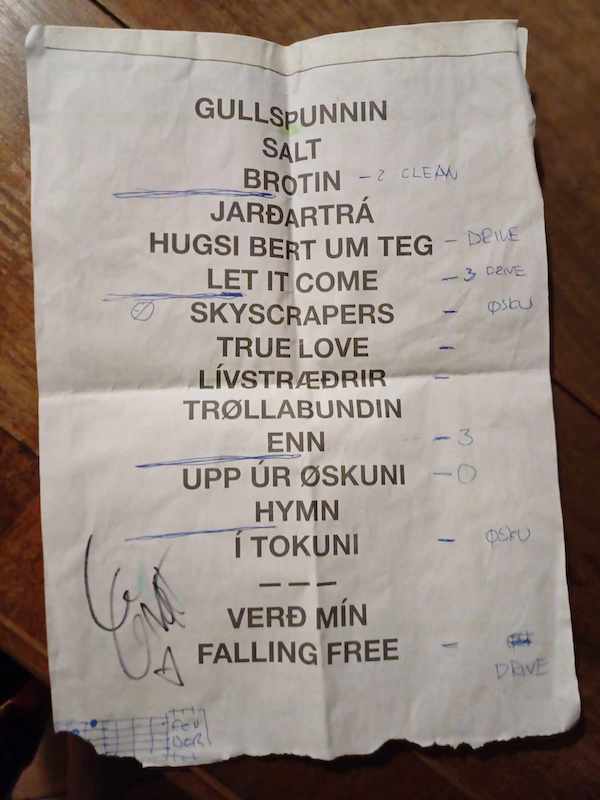 GULLSPUNNIN
SALT
BROTIN - 2 CLEAN
JARÐARTRÁ
HUGSI BERT UM TEG - DRIVE
LET IT COME - 3 DRIVE
SKYSCRAPERS - ØSKU
TRUE LOVE -
LÍVSTRÆÐRIR -
TRØLLABUNDIN
ENN - 3
UPP ÚR ØSKUNI - 0
HYMN
Í TOKUNI - ØSKU
– – –
VERÐ MÍN
FALLING FREE -
DRIVE